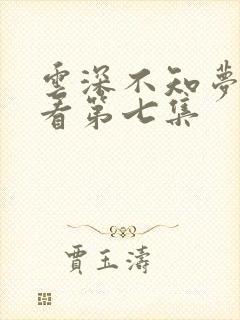 雲深不知夢
看第七集
賈玉濤